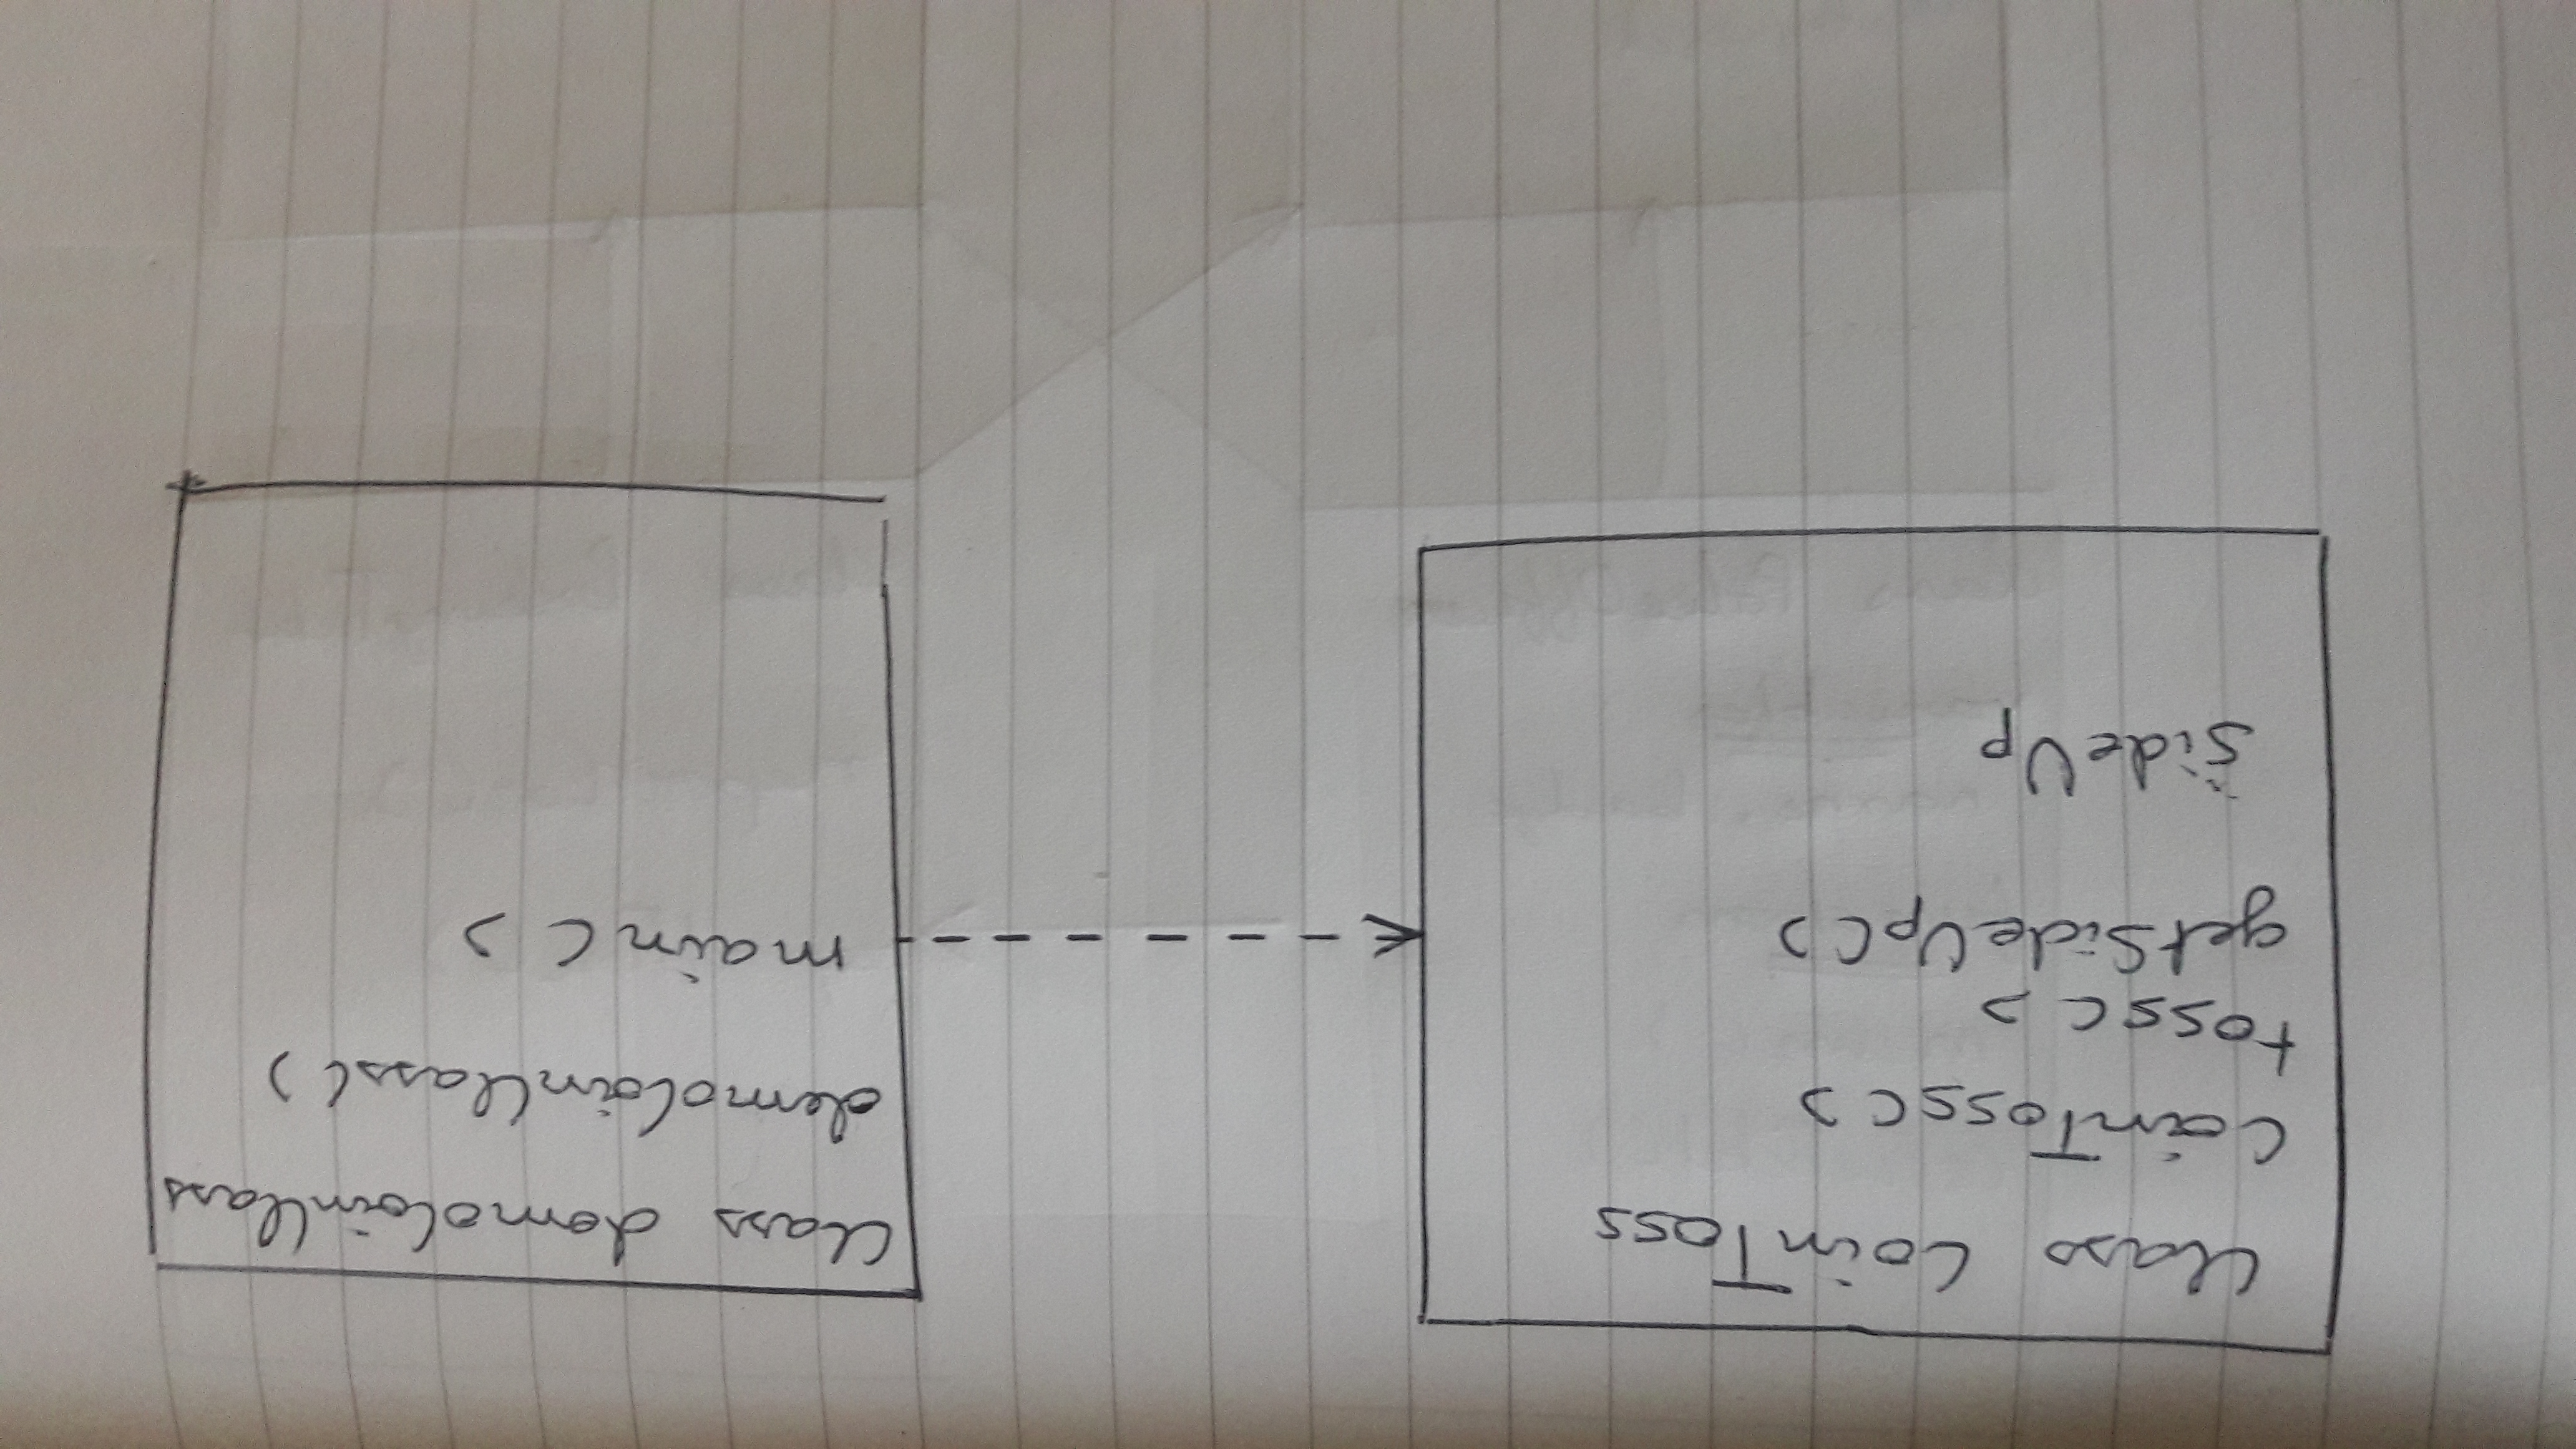 Class CoinToss
CoinToss()
toss()
getSideUp()
SideUp
Class demoCoinClass
demoCoinClass()
main()